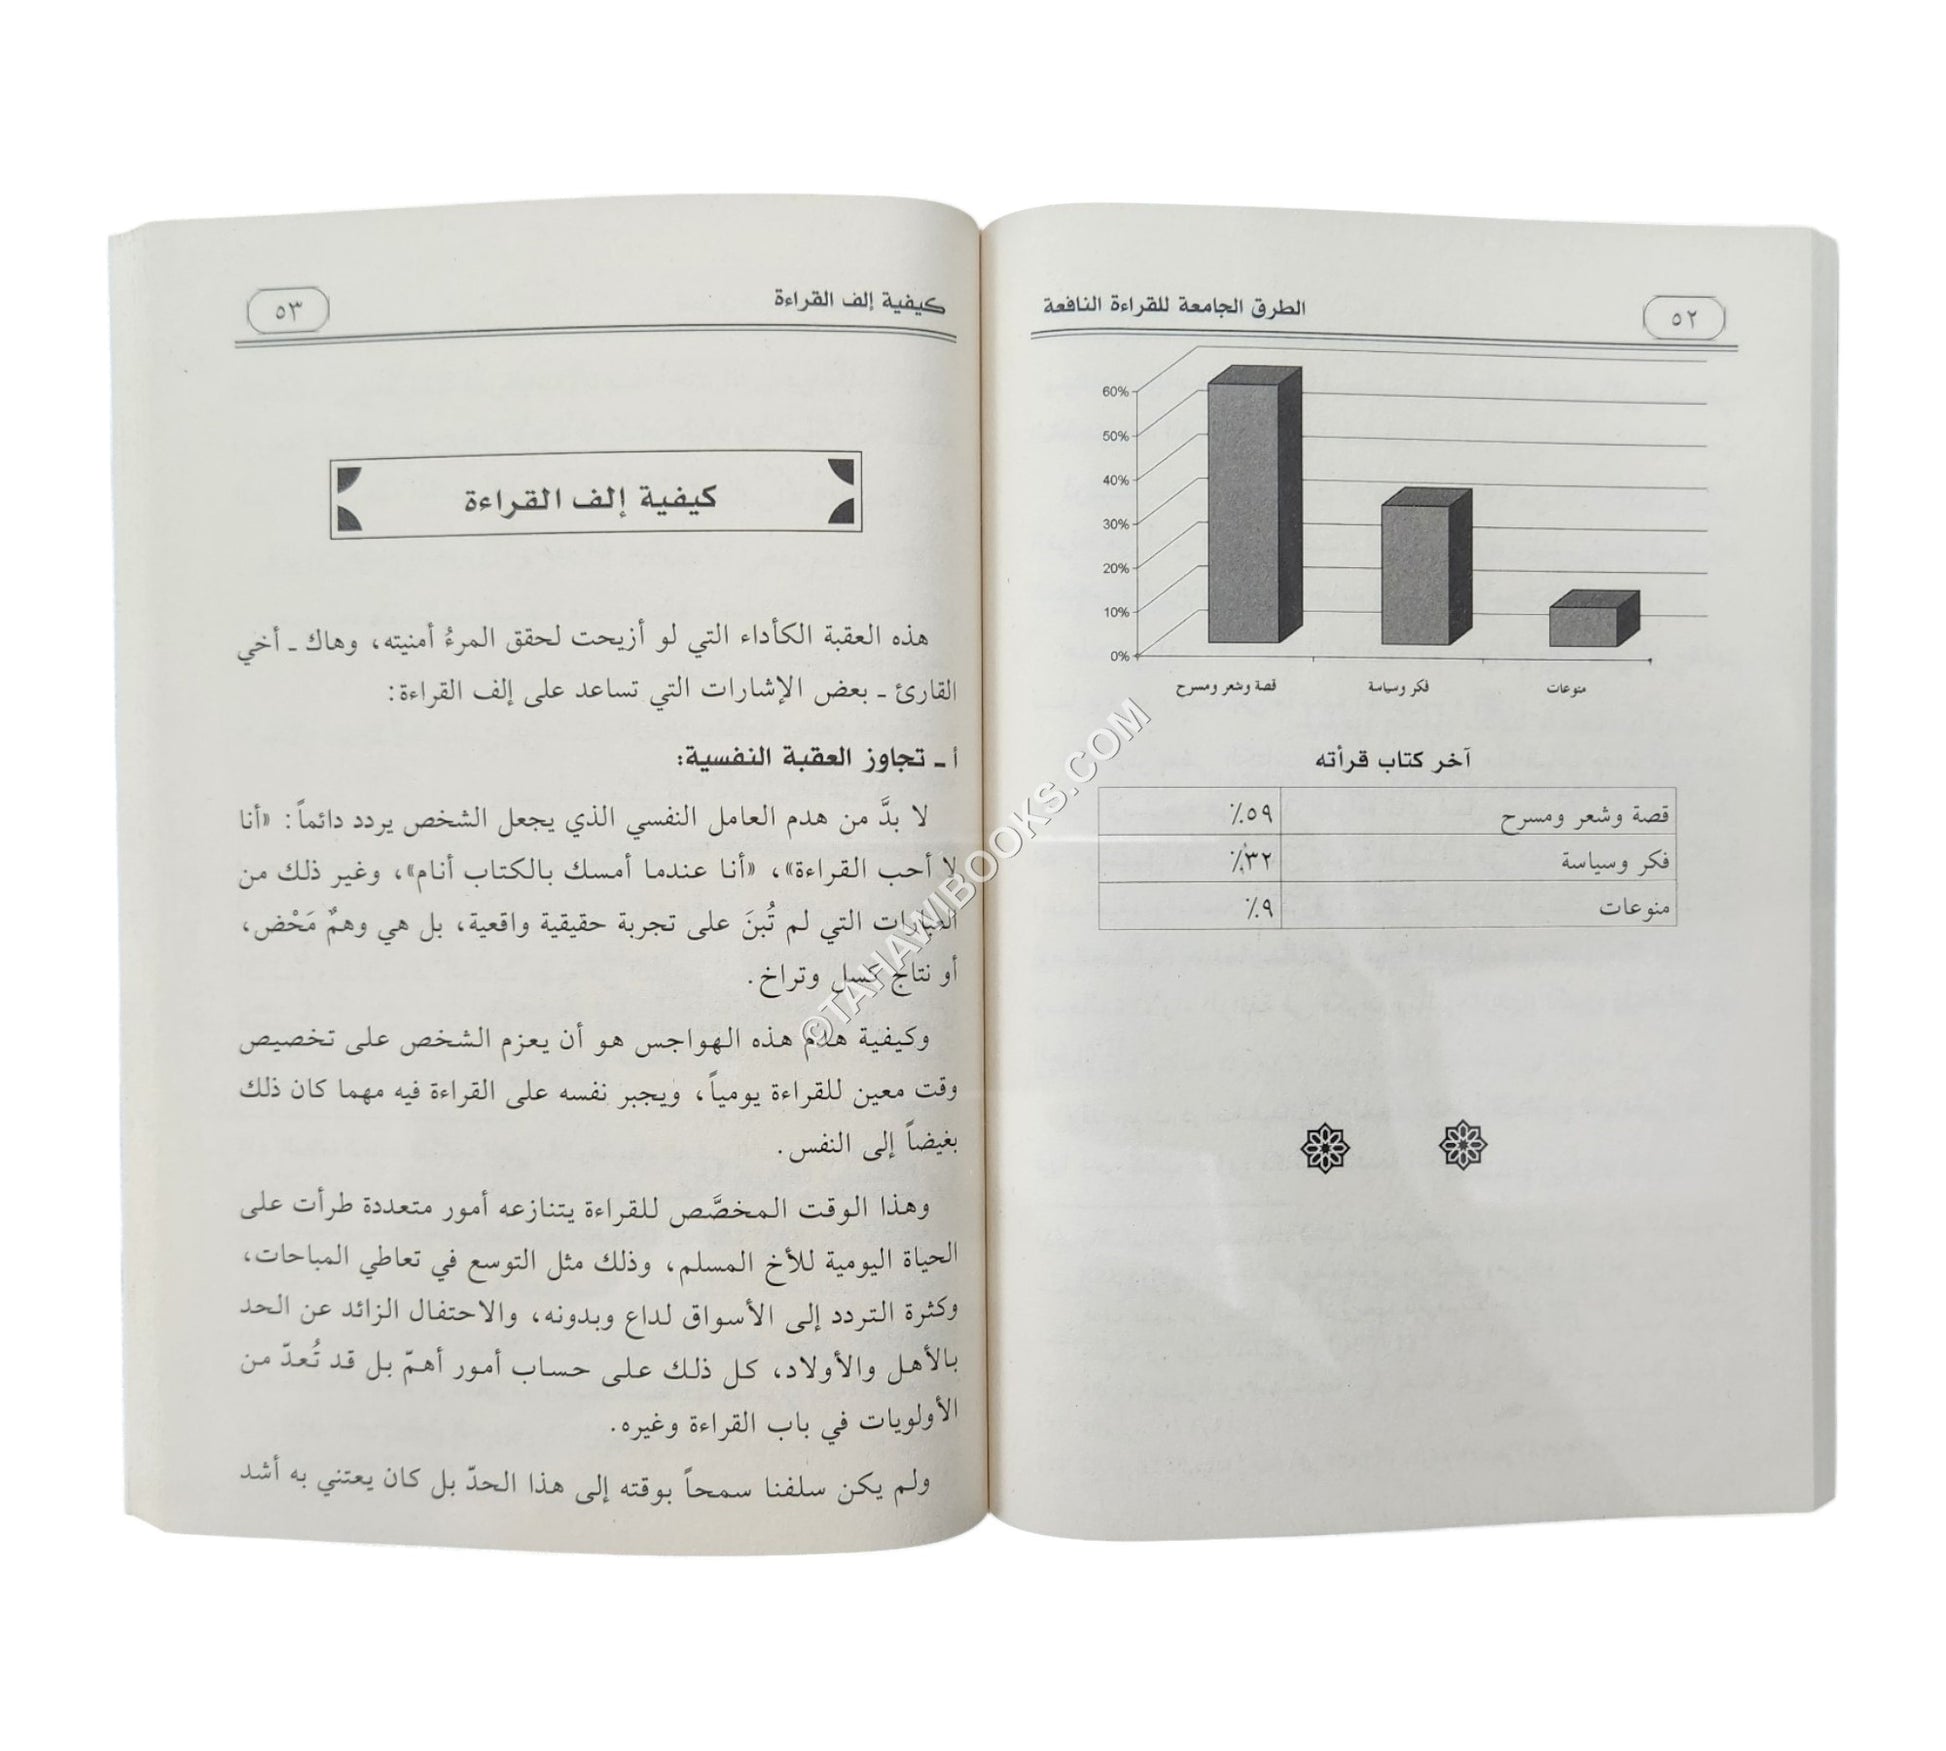 ٥٢
الطرق الجامعة للقراءة النافعة
60%
50%
40%
30%
20%
10%
0%
قصة وشعر ومسرح
فكر وسياسة
منوعات
آخر كتاب قرأته
قصة وشعر ومسرح ٥٩٪
فكر وسياسة ٣٢٪
منوعات ٩٪
كيفية إلف القراءة
٥٣
كيفية إلف القراءة
هذه العقبة الكأداء التي لو أزيحت لحقق المرءُ أمنيته، وهاك ـ أخي
القارئ ـ بعض الإشارات التي تساعد على إلف القراءة:
أ ـ تجاوز العقبة النفسية:
لا بدَّ من هدم العامل النفسي الذي يجعل الشخص يردد دائماً: «أنا
لا أحب القراءة»، «أنا عندما أمسك بالكتاب أنام»، وغير ذلك من
العبارات التي لم تُبنَ على تجربة حقيقية واقعية، بل هي وهمٌ مَحْض،
أو نتاج كسل وتراخ.
وكيفية هدم هذه الهواجس هو أن يعزم الشخص على تخصيص
وقت معين للقراءة يومياً، ويجبر نفسه على القراءة فيه مهما كان ذلك
بغيضاً إلى النفس.
وهذا الوقت المخصَّص للقراءة يتنازعه أمور متعددة طرأت على
الحياة اليومية للأخ المسلم، وذلك مثل التوسع في تعاطي المباحات،
وكثرة التردد إلى الأسواق لداع وبدونه، والاحتفال الزائد عن الحد
بالأهل والأولاد، كل ذلك على حساب أمور أهمّ بل قد تُعدّ من
الأولويات في باب القراءة وغيره.
ولم يكن سلفنا سمحاً بوقته إلى هذا الحدّ بل كان يعتني به أشد
©TAHAWIBOOKS.COM